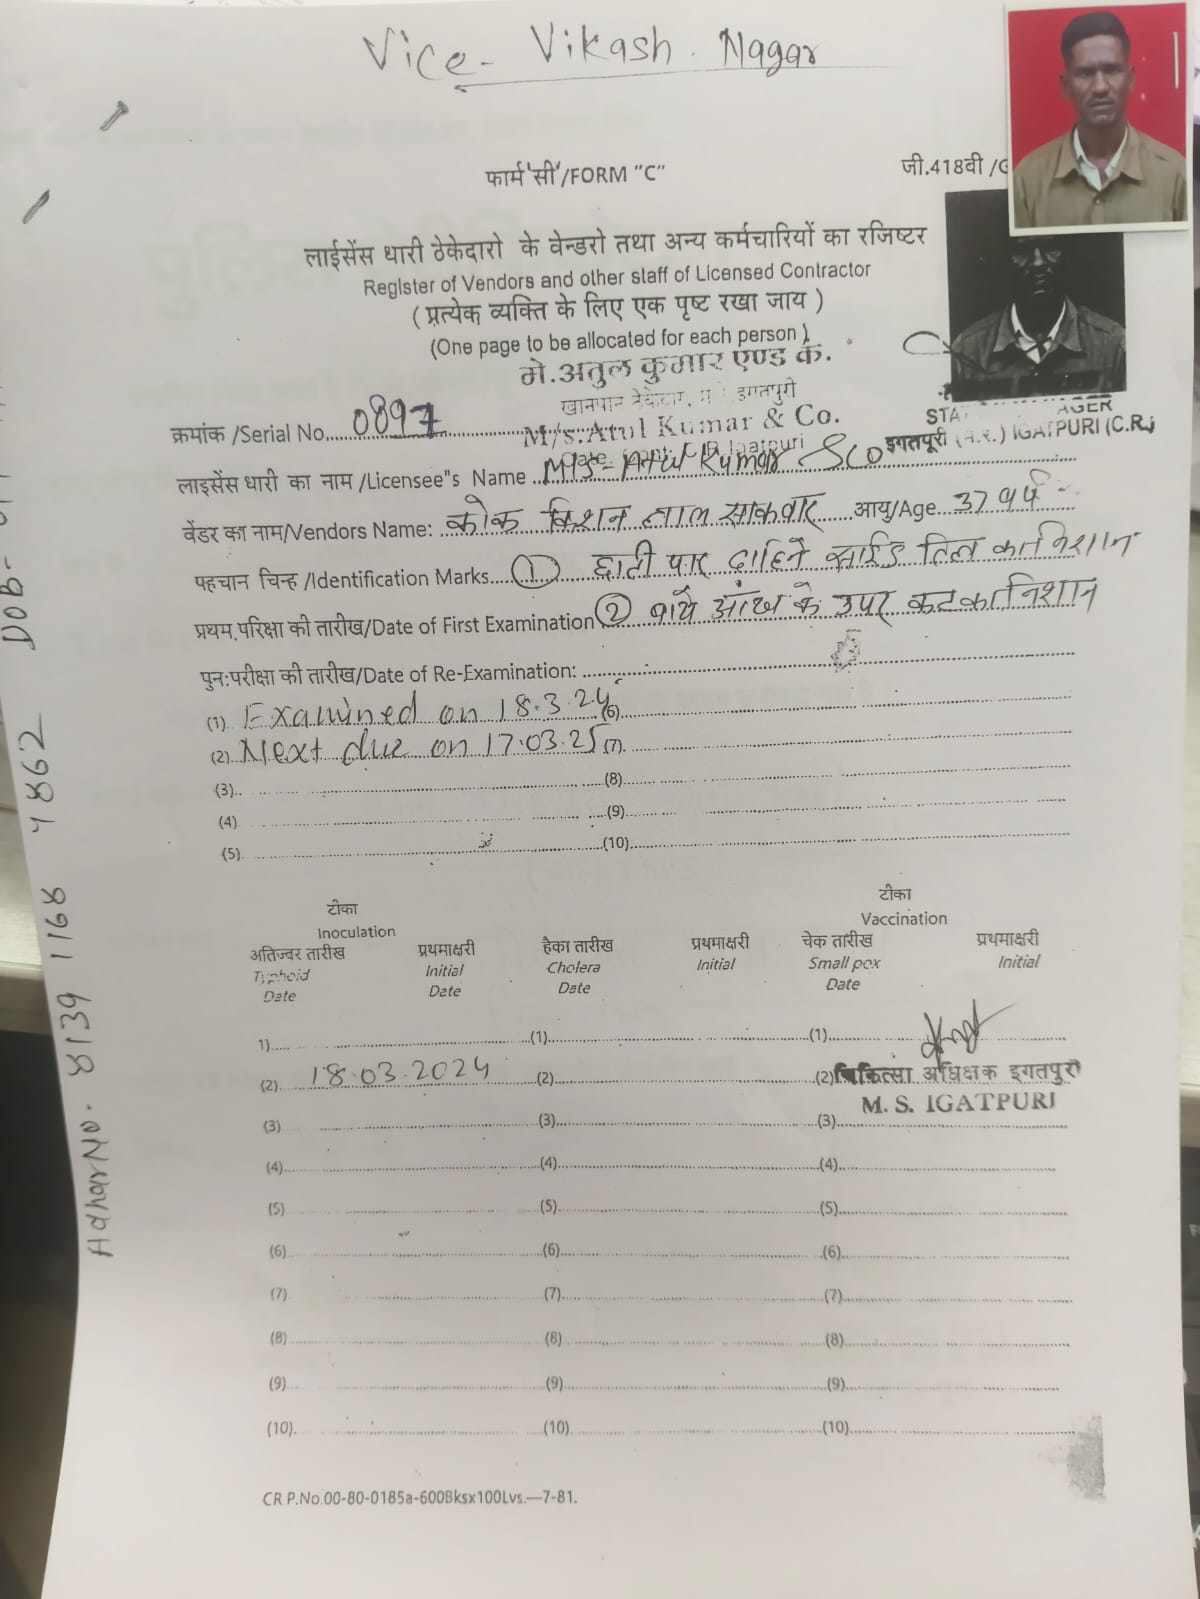 Vice- Vikash. Nagar
फार्म 'सी'/FORM "C"
जी.418बी /G
लाईसेंस धारी ठेकेदारो के वेन्डरो तथा अन्य कर्मचारियों का रजिष्टर
Register of Vendors and other staff of Licensed Contractor
( प्रत्येक व्यक्ति के लिए एक पृष्ट रखा जाय )
(One page to be allocated for each person )
मे.अतुल कुमार एण्ड कं.
खानपान इगतपुरी
M/s.Atul Kumar & Co.
Igatpuri
इगतपूरी IGATPURI (C.R.)
क्रमांक /Serial No. 0897
लाइसेंस धारी का नाम /Licensee"s Name M/s- Atul Kumar
वेंडर का नाम/Vendors Name: किशन लाल साकवार आयु/Age 37 वर्ष
पहचान चिन्ह /Identification Marks (1) छाती पार दाहिने साईड तिल का निशान
प्रथम परिक्षा की तारीख/Date of First Examination (2) बाये आंख के उपर कट का निशान
पुन:परीक्षा की तारीख/Date of Re-Examination:
(1) Examined on 18.3.24 (6)
(2) Next due on 17.03.25 (7)
(3) (8)
(4) (9)
(5) (10)
टीका
Inoculation
टीका
Vaccination
अतिज्वर तारीख प्रथमाक्षरी हैका तारीख प्रथमाक्षरी चेक तारीख प्रथमाक्षरी
Typhoid Initial Cholera Initial Small pox Initial
Date Date Date Date
1) (1) (1)
(2) 18.03.2024 (2) (2) चिकित्सा अधिक्षक इगतपुरी
M. S. IGATPURI
(3) (3) (3)
(4) (4) (4)
(5) (5) (5)
(6) (6) (6)
(7) (7) (7)
(8) (8) (8)
(9) (9) (9)
(10) (10) (10)
CR P.No.00-80-0185a-600Bksx100Lvs.—7-81.
AdharNo. 8139 1168 7862 DOB-